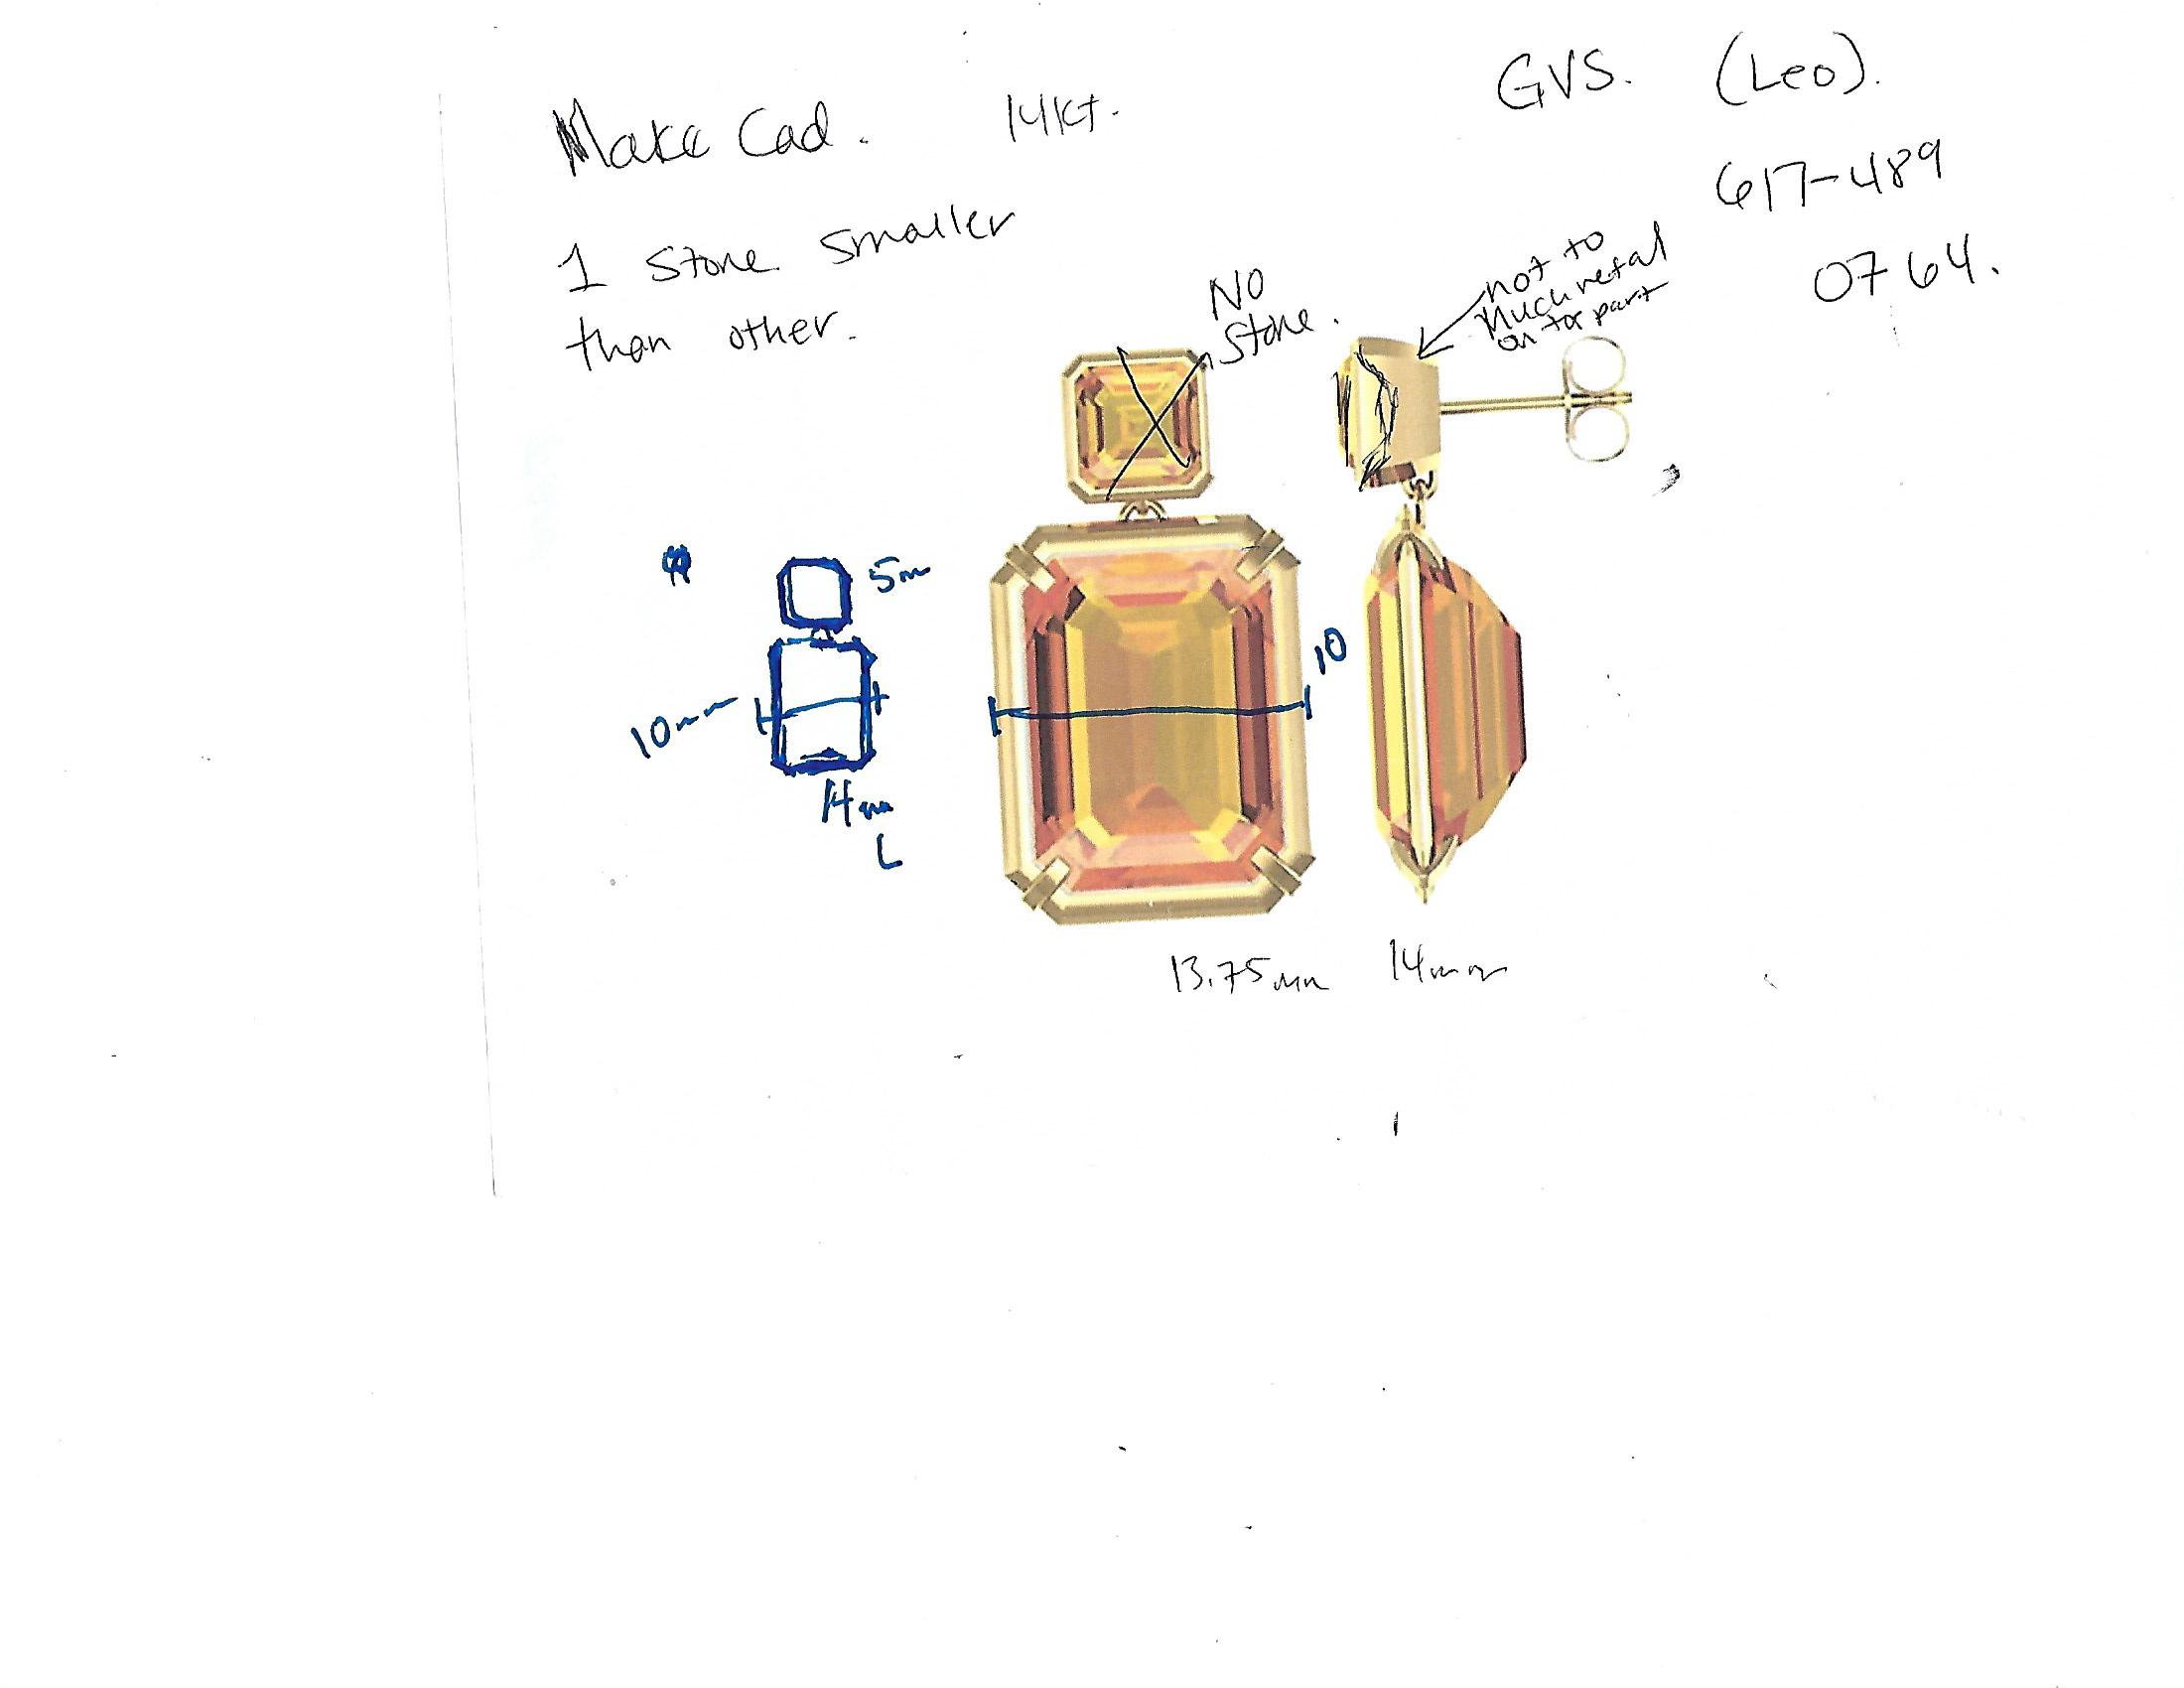 Make Cad. 14kt.
GVS. (Leo).
617-489
0764.
1 Stone smaller
than other.
NO
Stone.
not to
Much metal
on top part
5m
10mm
10
14mm
L
13.75mm 14mm